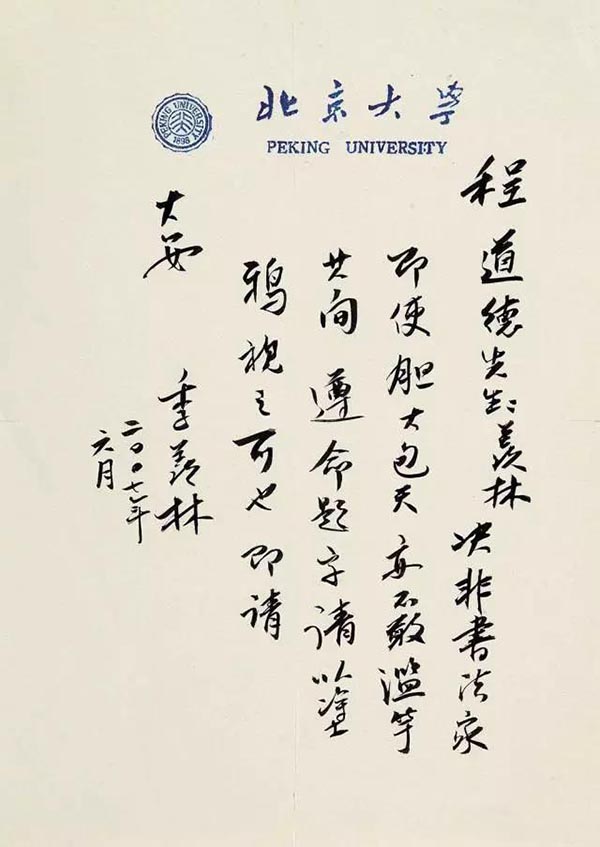 PEKING UNIVERSITY 1898
北京大學
PEKING UNIVERSITY
程道德先生:羡林决非書法家
即使胆大包天亦不敢滥竽
其间遵命题字请以塗
鸦视之可也即请
大安
季羡林
二〇〇七年
六月